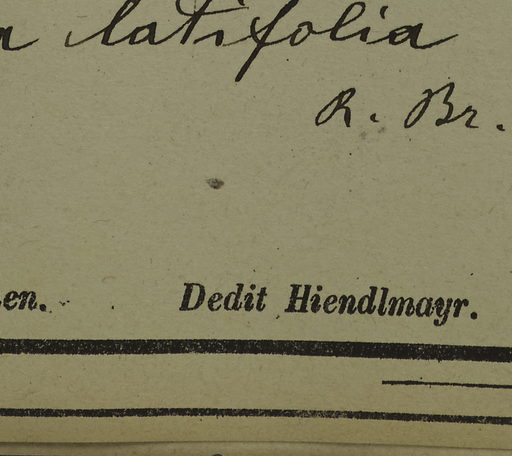 a latifolia
R. Br.
en. Dedit Hiendlmayr.